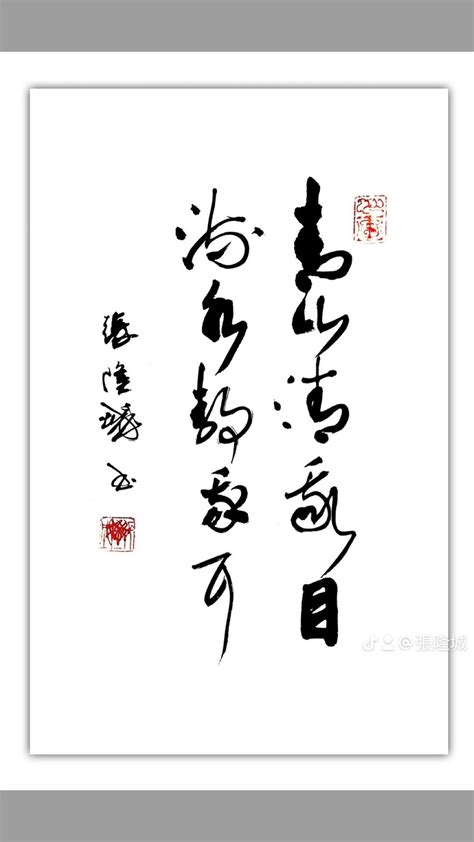 青山清我目
流水静我耳
张隆城书
@張隆城